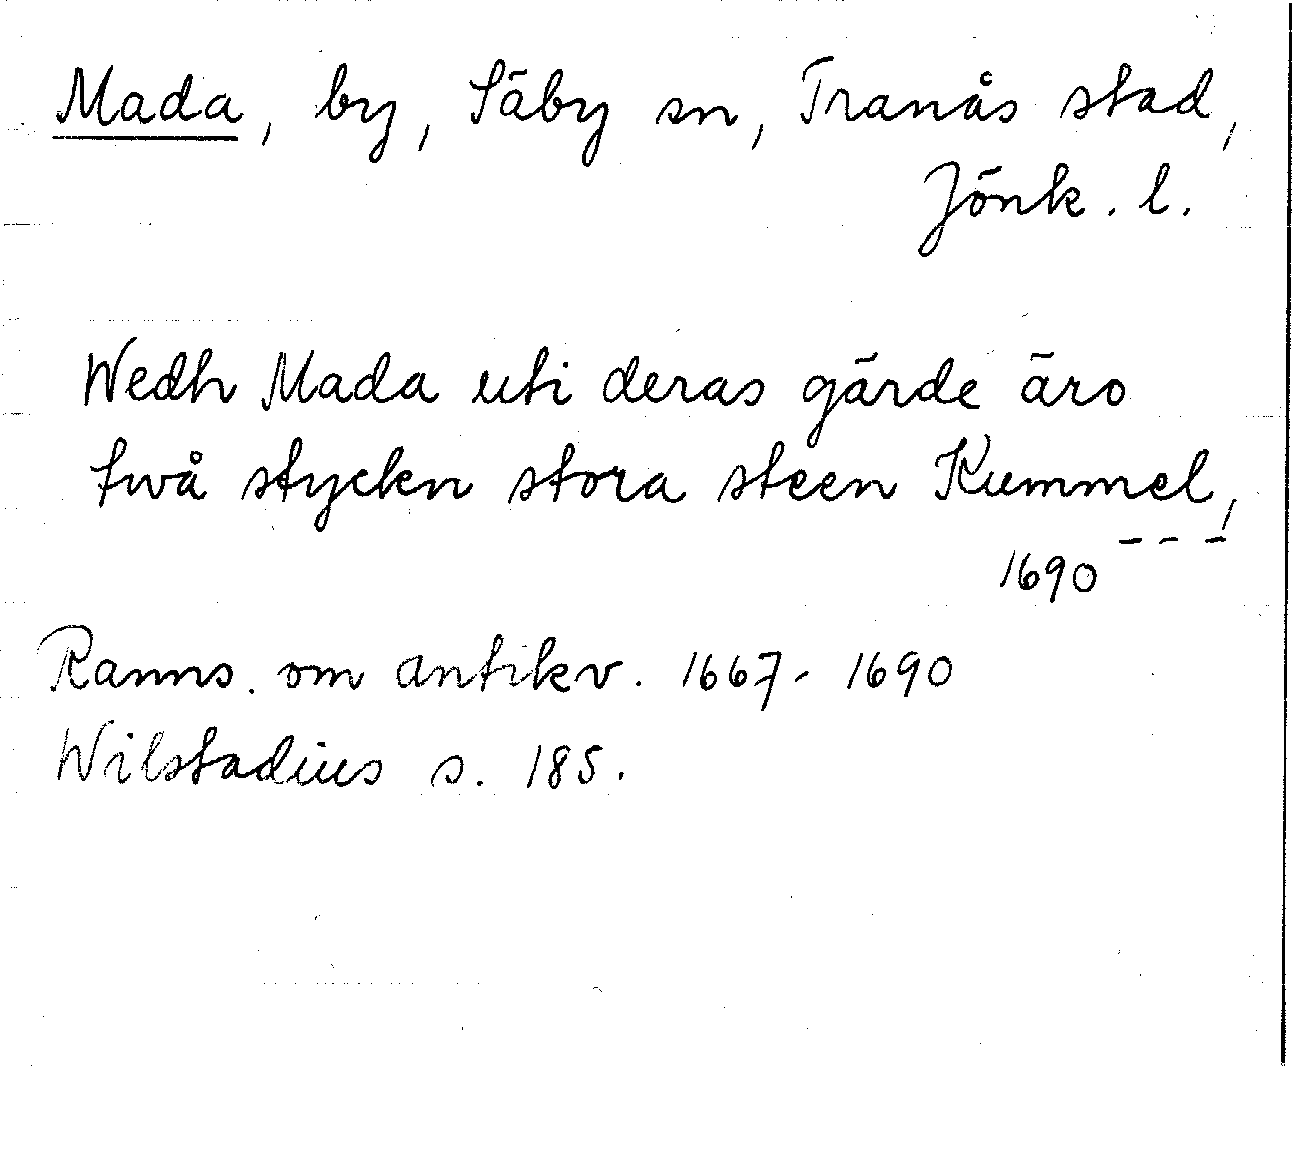 Mada, by, Säby sn, Tranås stad,
Jönk. l.
Wedh Mada uti deras gärde äro
twå styckn stora steen Kummel,
- - -
1690
Ranns. om antikv. 1667 - 1690
Wilstadius s. 185.